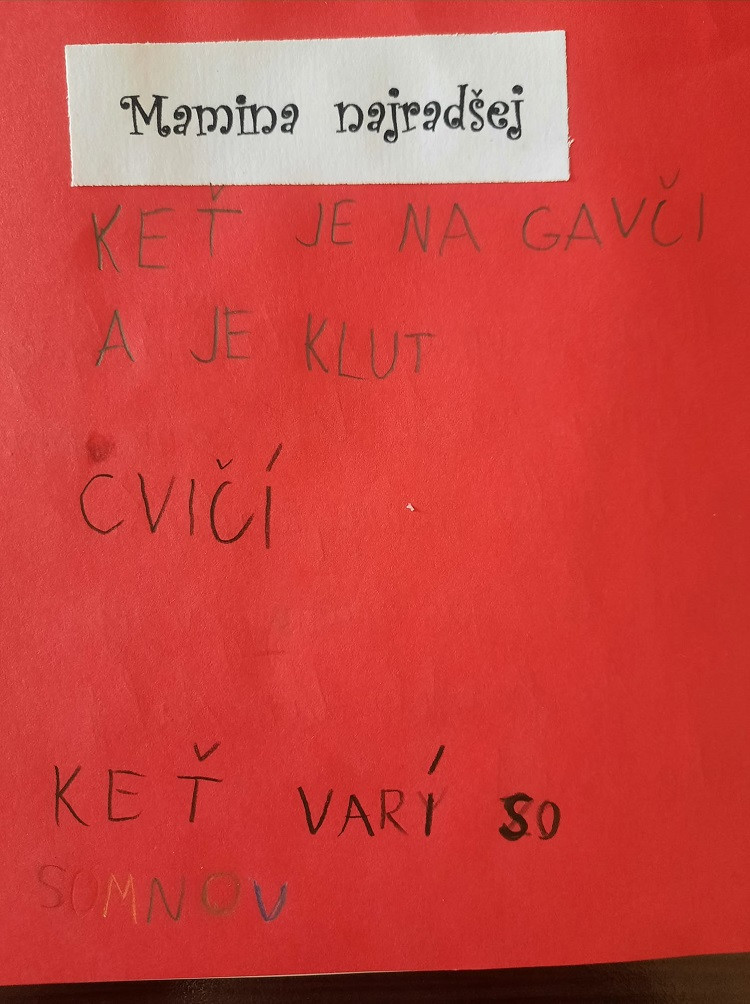 Mamina najradšej
KEŤ JE NA GAVČI
A JE KLUT
CVIČÍ
KEŤ VARÍ SO
SOMNOV